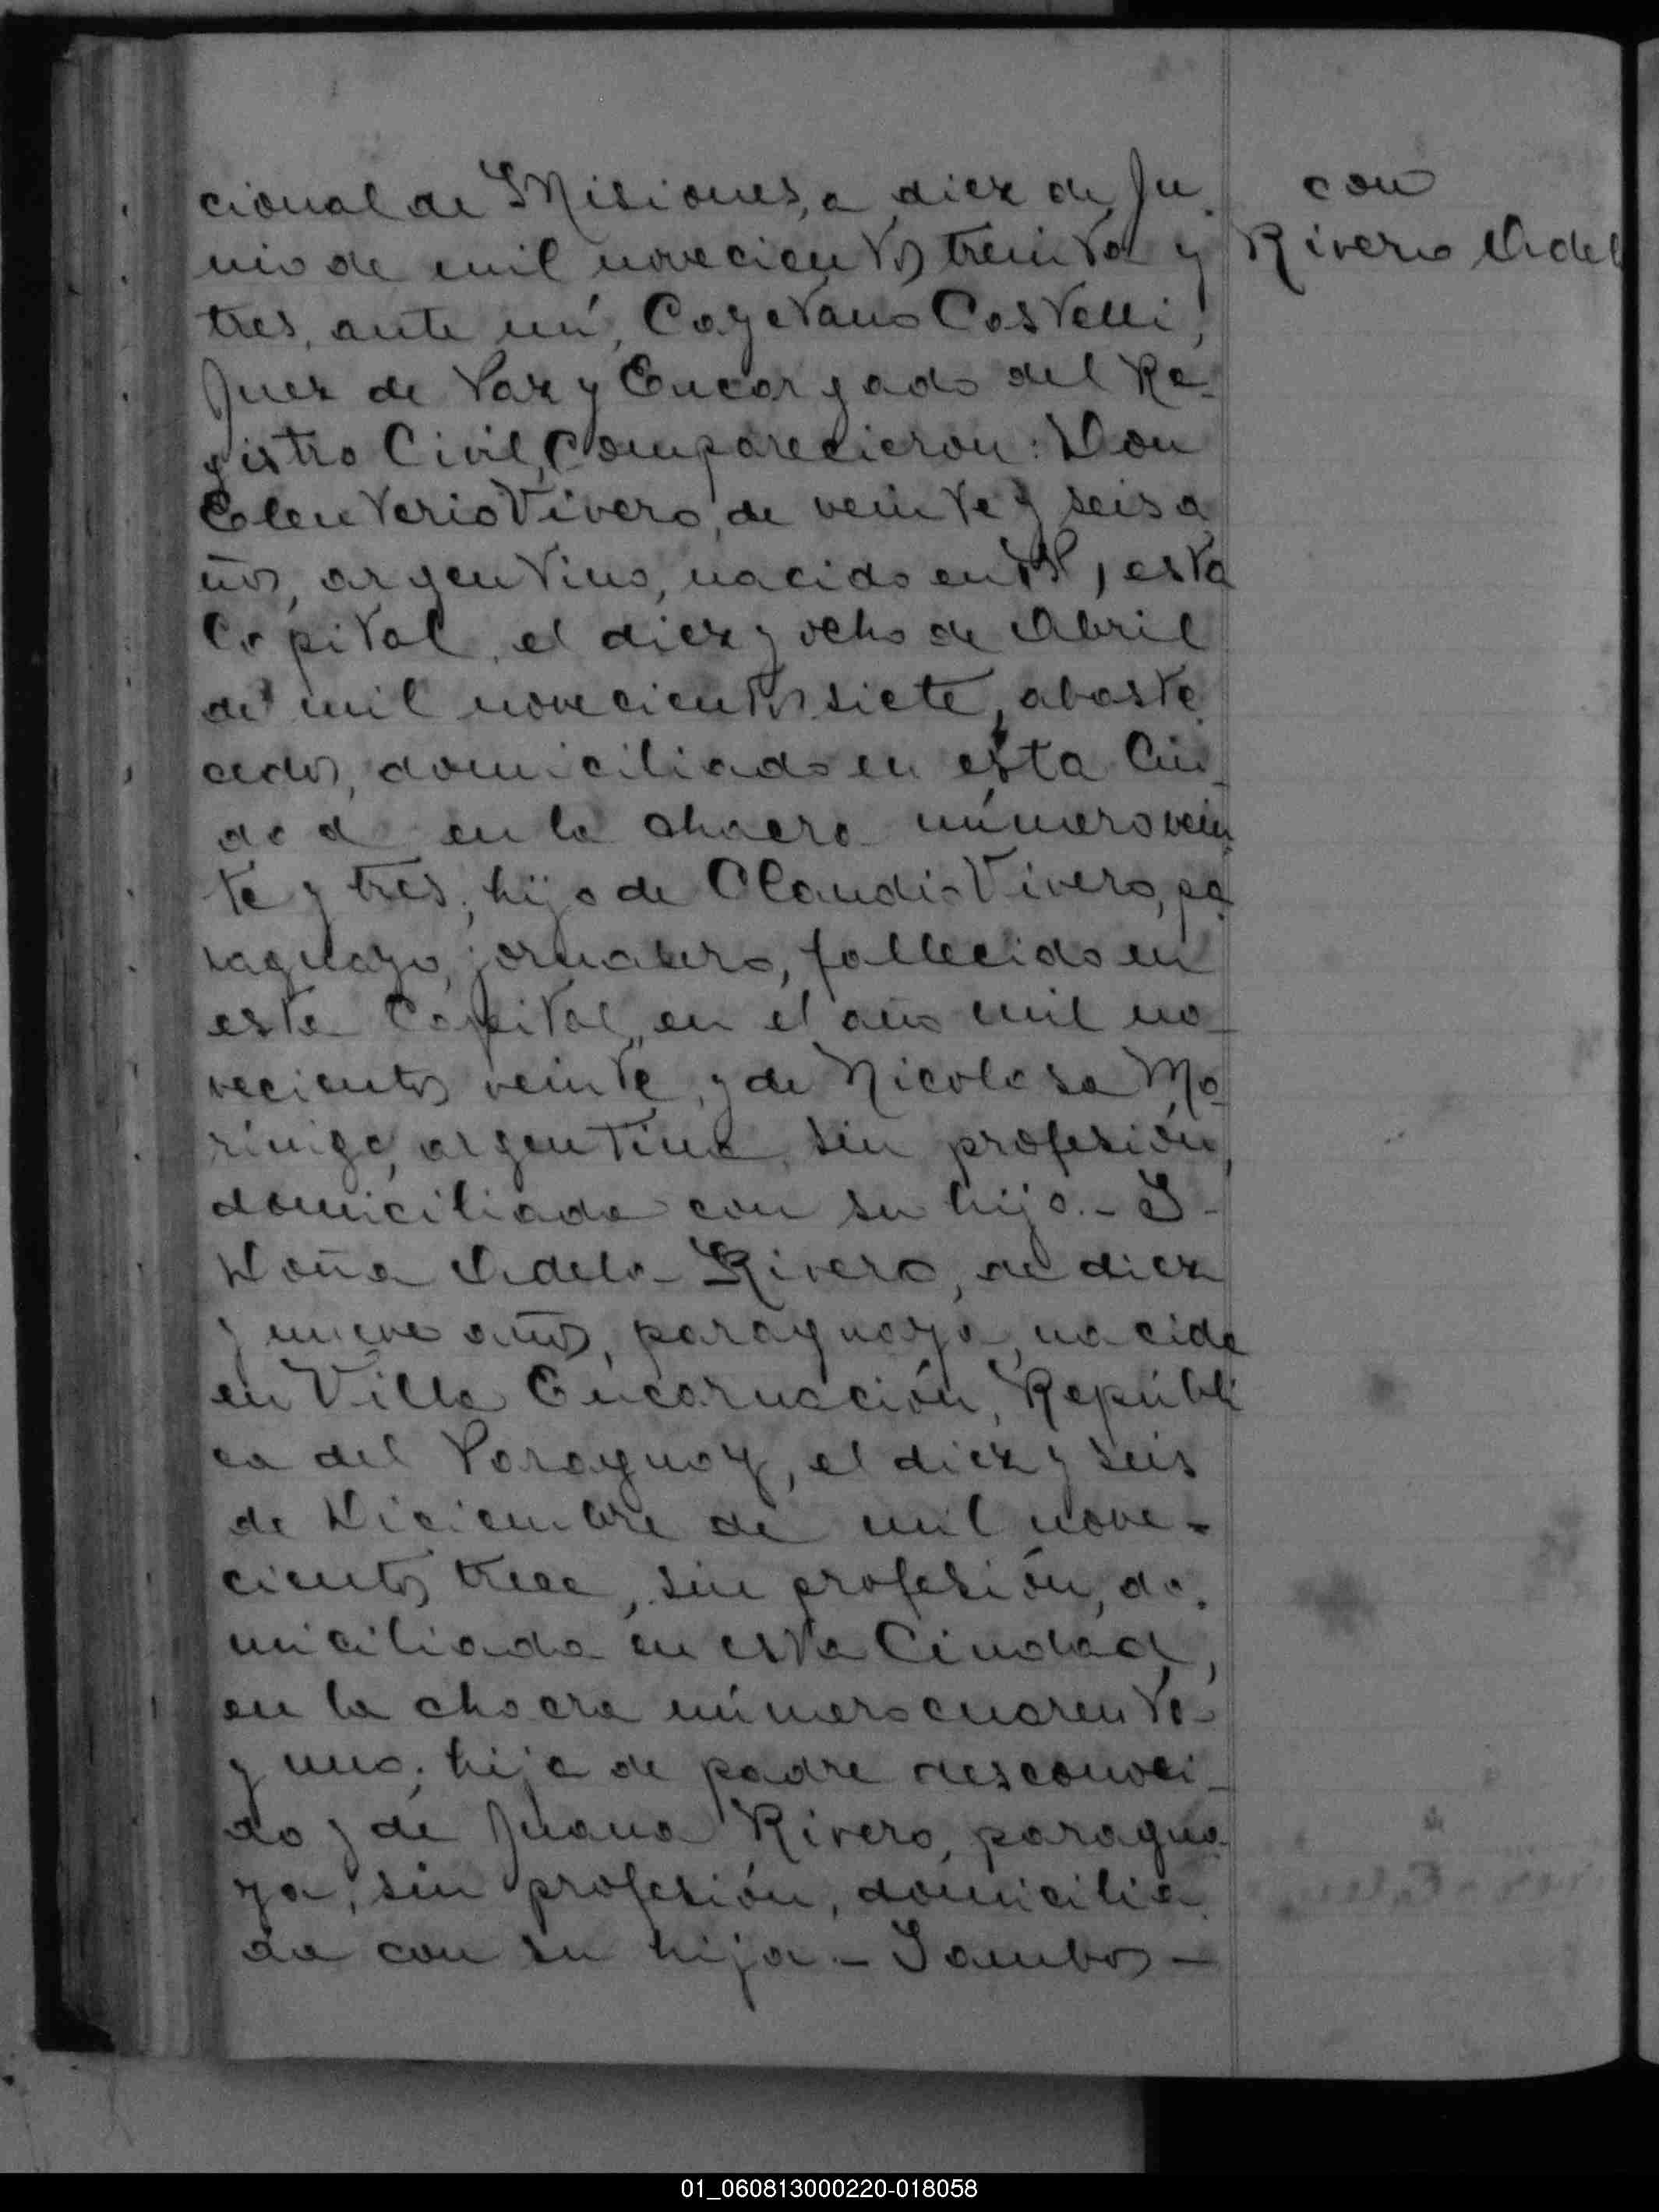 cional de Misiones, a diez de Ju-
nio de mil novecientos treinta y
tres, ante mí, Cayetano Castelli,
Juez de Paz y Encargado del Re-
gistro Civil, Comparecieron: Don
Eleuterio Vivero, de veinte y seis a
ños, argentino, nacido en esta
Capital, el diez y ocho de Abril
de mil novecientos siete, abaste
cedor, domiciliado en esta Ciu-
dad en la chacra número vein
te y tres; hijo de Claudio Vivero, pa
raguayo, jornalero, fallecido en
esta Capital, en el año mil no-
vecientos veinte, y de Nicolasa Mo-
rínigo, argentina, sin profesión,
domiciliada con su hijo.- Y-
Doña Adela Rivero, de diez
y nueve años, paraguaya, nacida
en Villa Encarnación, Repúbli
ca del Paraguay, el diez y seis
de Diciembre de mil nove-
cientos trece, sin profesión, do-
miciliada en esta Ciudad,
en la chacra número cuarenta
y uno; hija de padre desconoci-
do y de Juana Rivero, paragua
ya, sin profesión, domicilia
da con su hija - Y ambos -
con
Rivero Adel
01_060813000220-018058